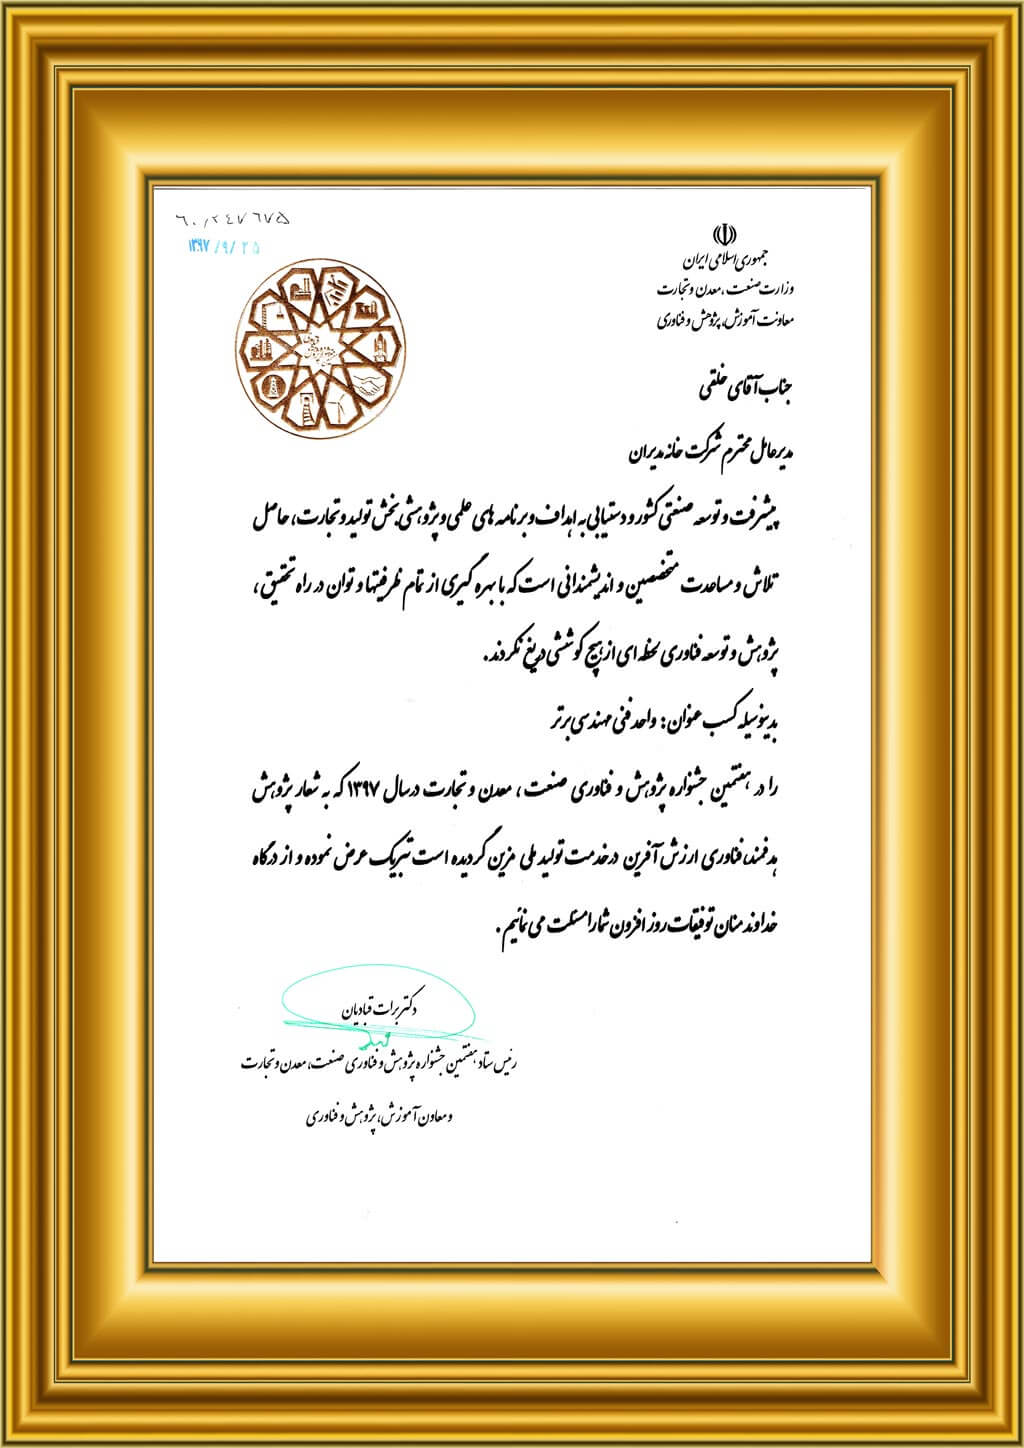 ۶۰/۲۴۷۶۷۵
۱۳۹۷/۹/۲۵
جمهوری اسلامی ایران
وزارت صنعت، معدن و تجارت
معاونت آموزش، پژوهش و فناوری
جناب آقای خلقی
مدیرعامل محترم شرکت خانه مدیران
پیشرفت و توسعه صنعتی کشور و دستیابی به اهداف و برنامه های علمی و پژوهشی بخش تولید و تجارت، حاصل
تلاش و مساعدت متخصصین و اندیشمندانی است که با بهره گیری از تمام ظرفیتها و توان در راه تحقیق،
پژوهش و توسعه فناوری لحظه ای از هیچ کوششی دریغ نکردند.
بدینوسیله کسب عنوان: واحد فنی مهندسی برتر
را در هفتمین جشنواره پژوهش و فناوری صنعت، معدن و تجارت در سال ۱۳۹۷ که به شعار پژوهش
هدفمند، فناوری ارزش آفرین در خدمت تولید ملی مزین گردیده است تبریک عرض نموده و از درگاه
خداوند منان توفیقات روز افزون شما را مسئلت می نمائیم.
دکتر برات قبادیان
رئیس ستاد هفتمین جشنواره پژوهش و فناوری صنعت، معدن و تجارت
و معاون آموزش، پژوهش و فناوری